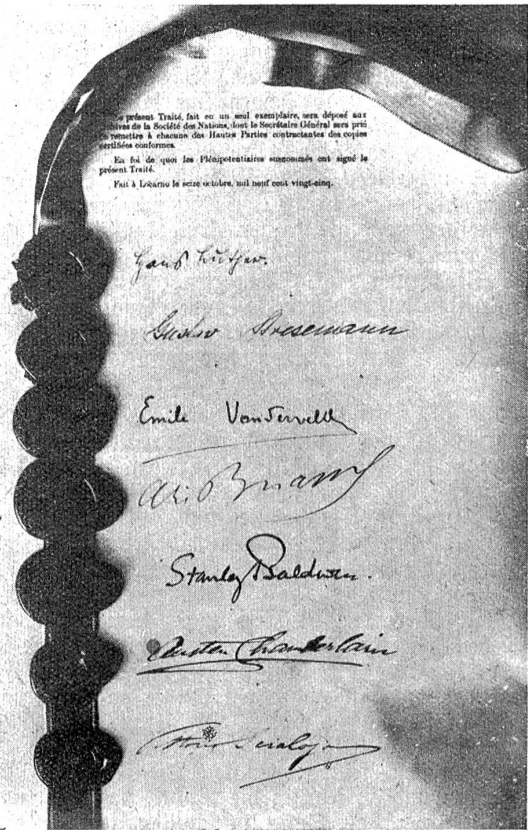 présent Traité, fait en un seul exemplaire, sera déposé aux
hives de la Société des Nations, dont le Secrétaire Général sera prié
remettre à chacune des Hautes Parties contractantes des copies
certifiées conformes.
En foi de quoi les Plénipotentiaires susnommés ont signé le
présent Traité.
Fait à Locarno le seize octobre, mil neuf cent vingt-cinq.
Hans Luther.
Gustav Stresemann
Emile Vandervelde
Ari Briand
Stanley Baldwin.
Austen Chamberlain
Vittorio Scialoja